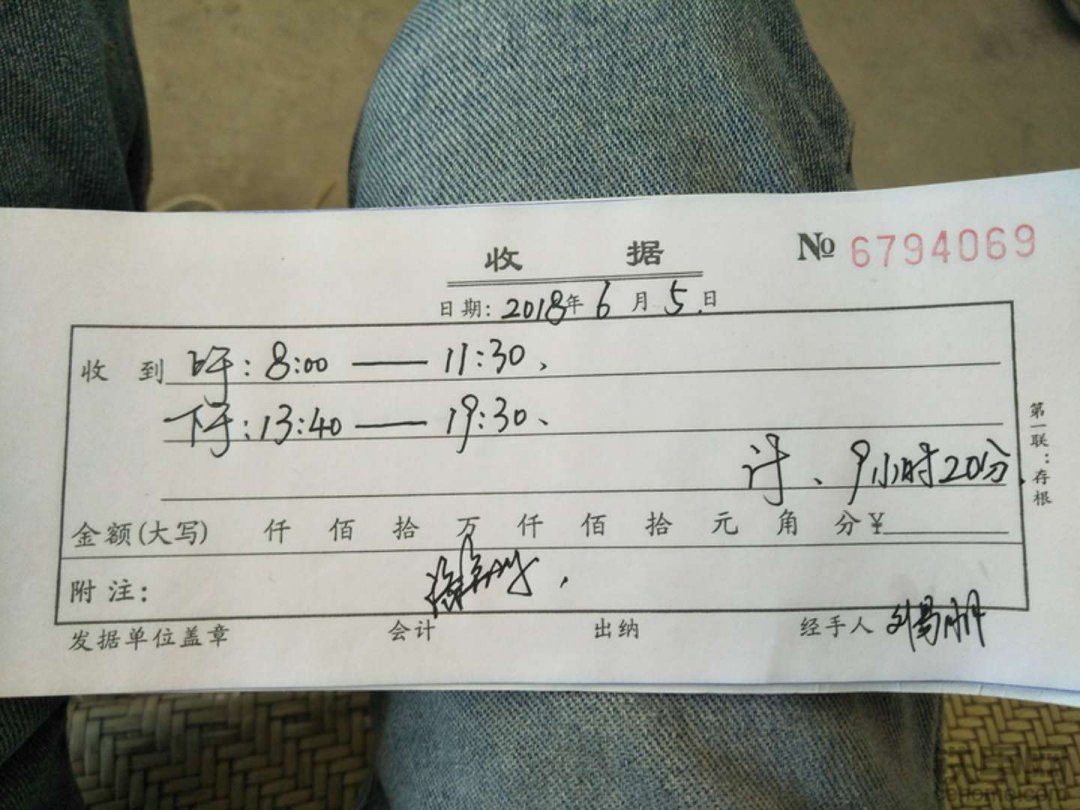 收 据
№ 6794069
日期: 2018年 6 月 5 日
收 到 上午: 8:00 —— 11:30、
下午: 13:40 —— 19:30、
计、9小时20分
金额(大写) 仟 佰 拾 万 仟 佰 拾 元 角 分 ¥
附 注:
发据单位盖章 会计 出纳 经手人
第一联:存根